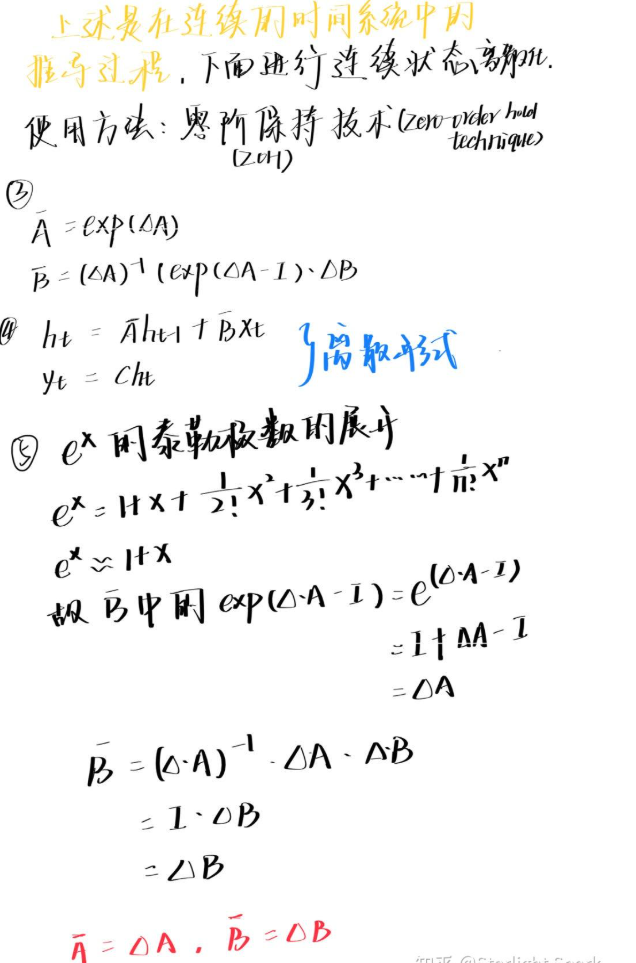 上述是在连续的时间系统中的
推导过程，下面进行连续状态离散化.
使用方法：零阶保持技术(Zero-order hold
technique)
(ZOH)
③
Ā = exp(ΔA)
B̄ = (ΔA)⁻¹(exp(ΔA-I)·ΔB
④ ht = Āht-1 + B̄xt
yt = Cht
}离散形式
⑤ eˣ的泰勒级数的展开
eˣ = 1+x+ 1/2! x²+ 1/3! x³+……+ 1/n! xⁿ
eˣ ≈ 1+x
故 B̄ 中的 exp(Δ·A-I) = e^(Δ·A-I)
= I+ΔA-I
= ΔA
B̄ = (Δ·A)⁻¹·ΔA·ΔB
= I·ΔB
= ΔB
Ā = ΔA , B̄ = ΔB